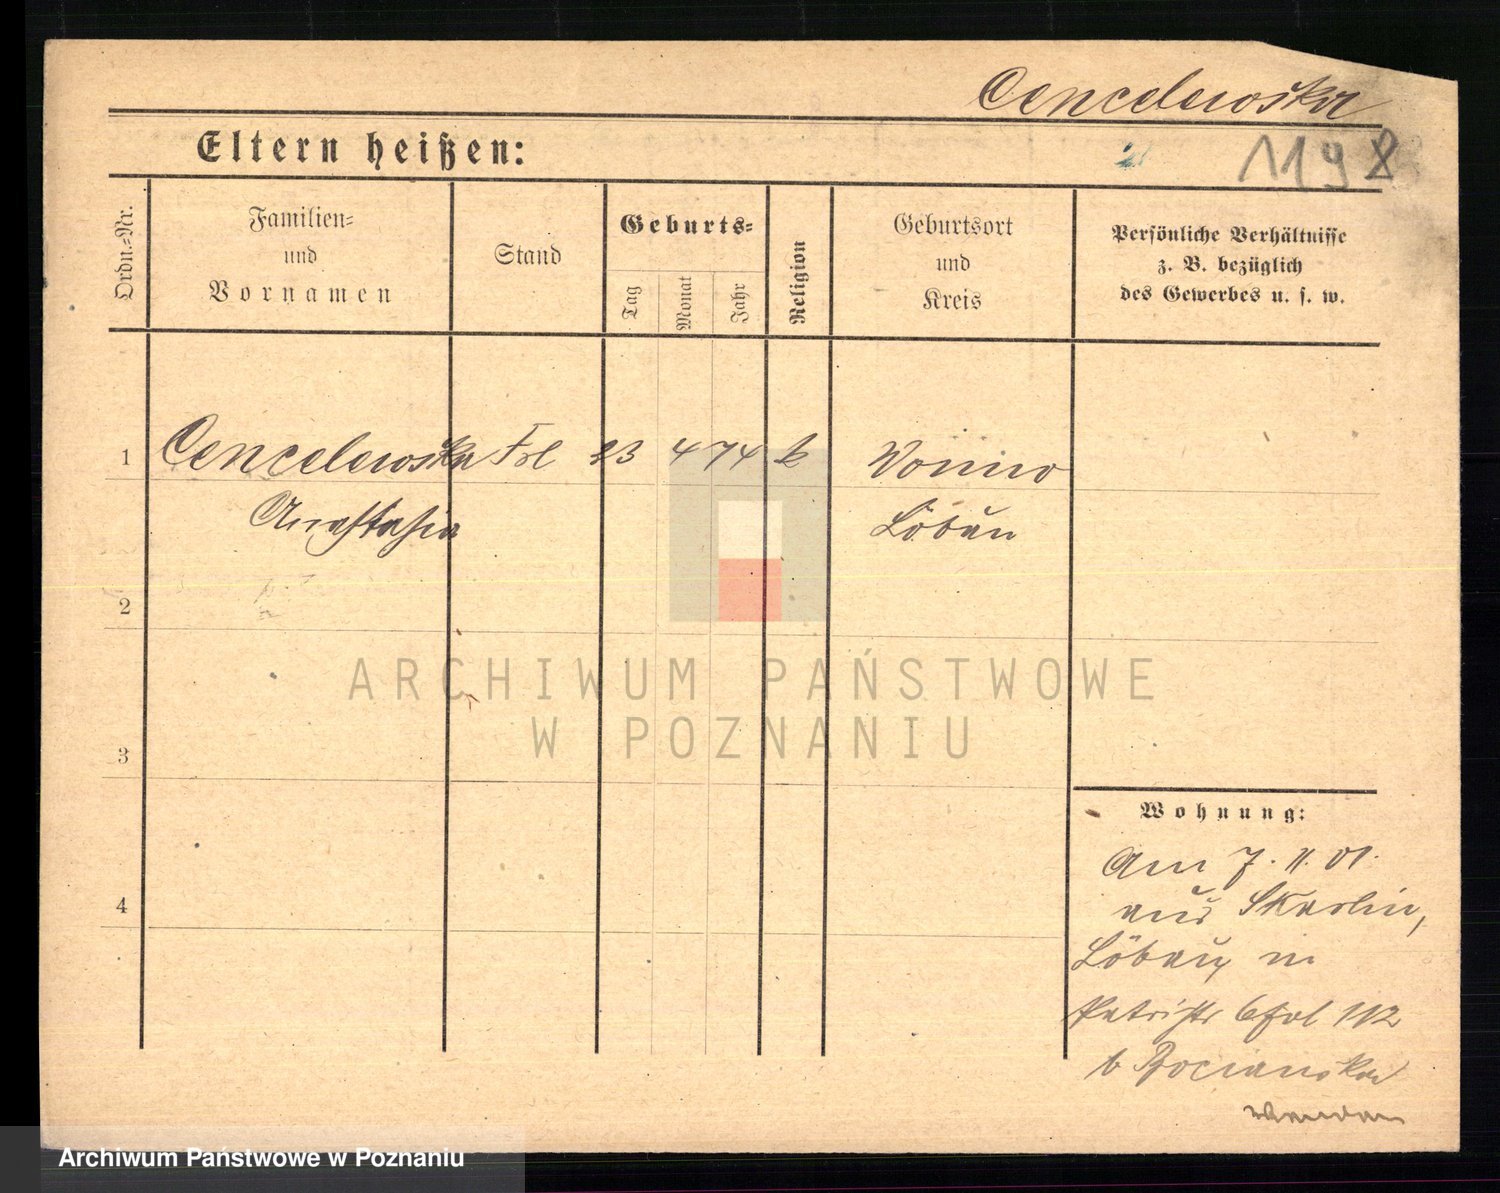 Cencelewska
Eltern heißen:
2
119
Ordn.=Nr.
Familien=
und
Vornamen
Stand
Geburts=
Tag
Monat
Jahr
Religion
Geburtsort
und
Kreis
Persönliche Verhältnisse
z. B. bezüglich
des Gewerbes u. s. w.
1 Cencelewska Frl 23 4 74 k
Anastasia Löbau
2
3
4
Wohnung:
Am 7. 11. 01.
aus Skarlin,
Löbau, in
Patristr 6 Fol 112
b Bocianska
wenden
ARCHIWUM PAŃSTWOWE
W POZNANIU
Archiwum Państwowe w Poznaniu